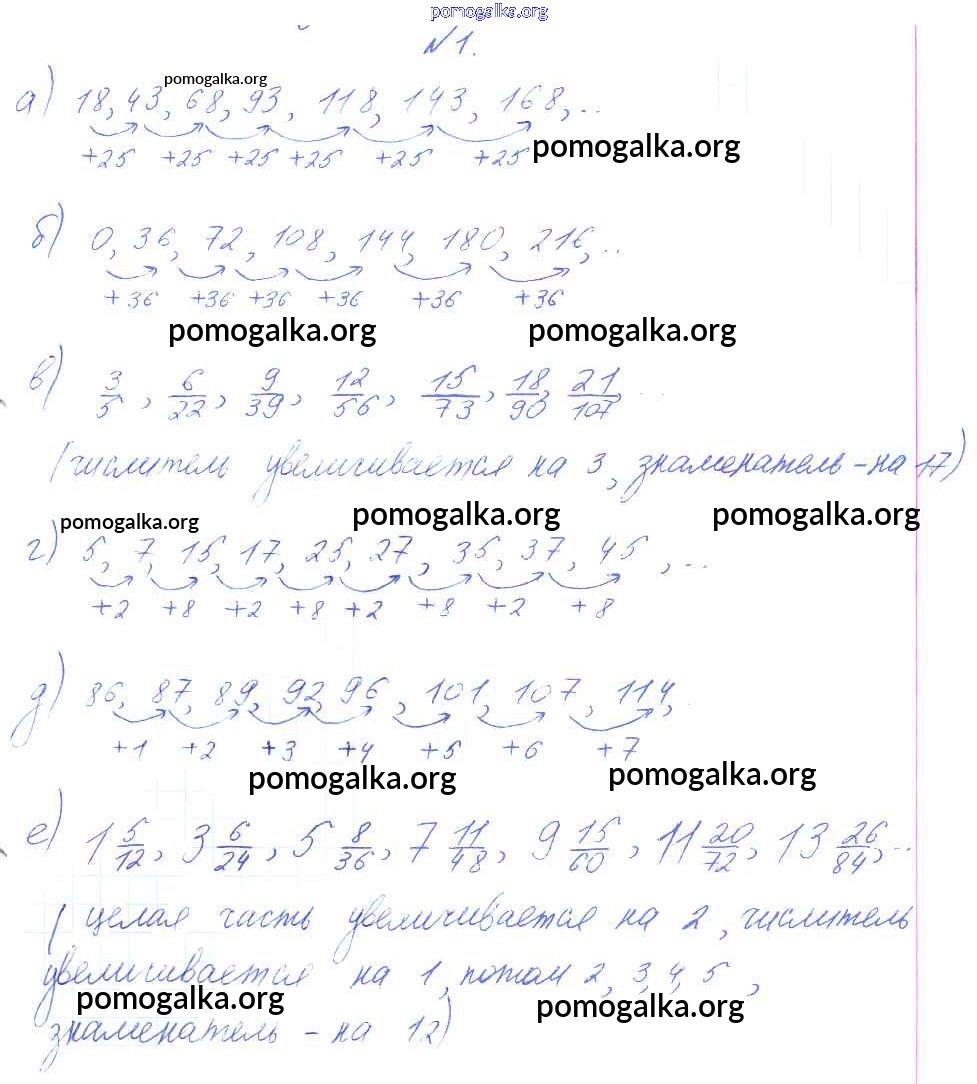 pomogalka.org
№1.
pomogalka.org
а) 18, 43, 68, 93, 118, 143, 168, ..
+25 +25 +25 +25 +25 +25
pomogalka.org
б) 0, 36, 72, 108, 144, 180, 216, ..
+36 +36 +36 +36 +36 +36
pomogalka.org pomogalka.org
в) 3/5, 6/22, 9/39, 12/56, 15/73, 18/90, 21/107, ...
(числитель увеличивается на 3, знаменатель - на 17)
pomogalka.org pomogalka.org pomogalka.org
г) 5, 7, 15, 17, 25, 27, 35, 37, 45, ...
+2 +8 +2 +8 +2 +8 +2 +8
д) 86, 87, 89, 92, 96, 101, 107, 114,
+1 +2 +3 +4 +5 +6 +7
pomogalka.org pomogalka.org
е) 1 5/12, 3 6/24, 5 8/36, 7 11/48, 9 15/60, 11 20/72, 13 26/84, ..
( целая часть увеличивается на 2, числитель
увеличивается на 1, потом 2, 3, 4, 5,
pomogalka.org pomogalka.org
знаменатель - на 12)